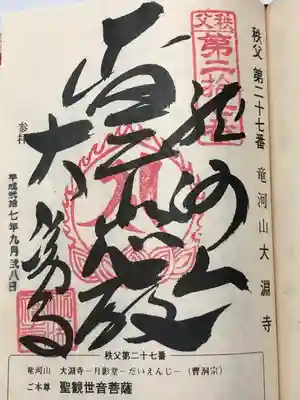 秩父 第二十七番 竜河山大淵寺
秩父
竜河山
大淵寺
参拝
平成弐拾七年九月弐八日
秩父第二十七番
竜河山 大淵寺―月影堂―だいえんじ―(曹洞宗)
ご本尊 聖観世音菩薩